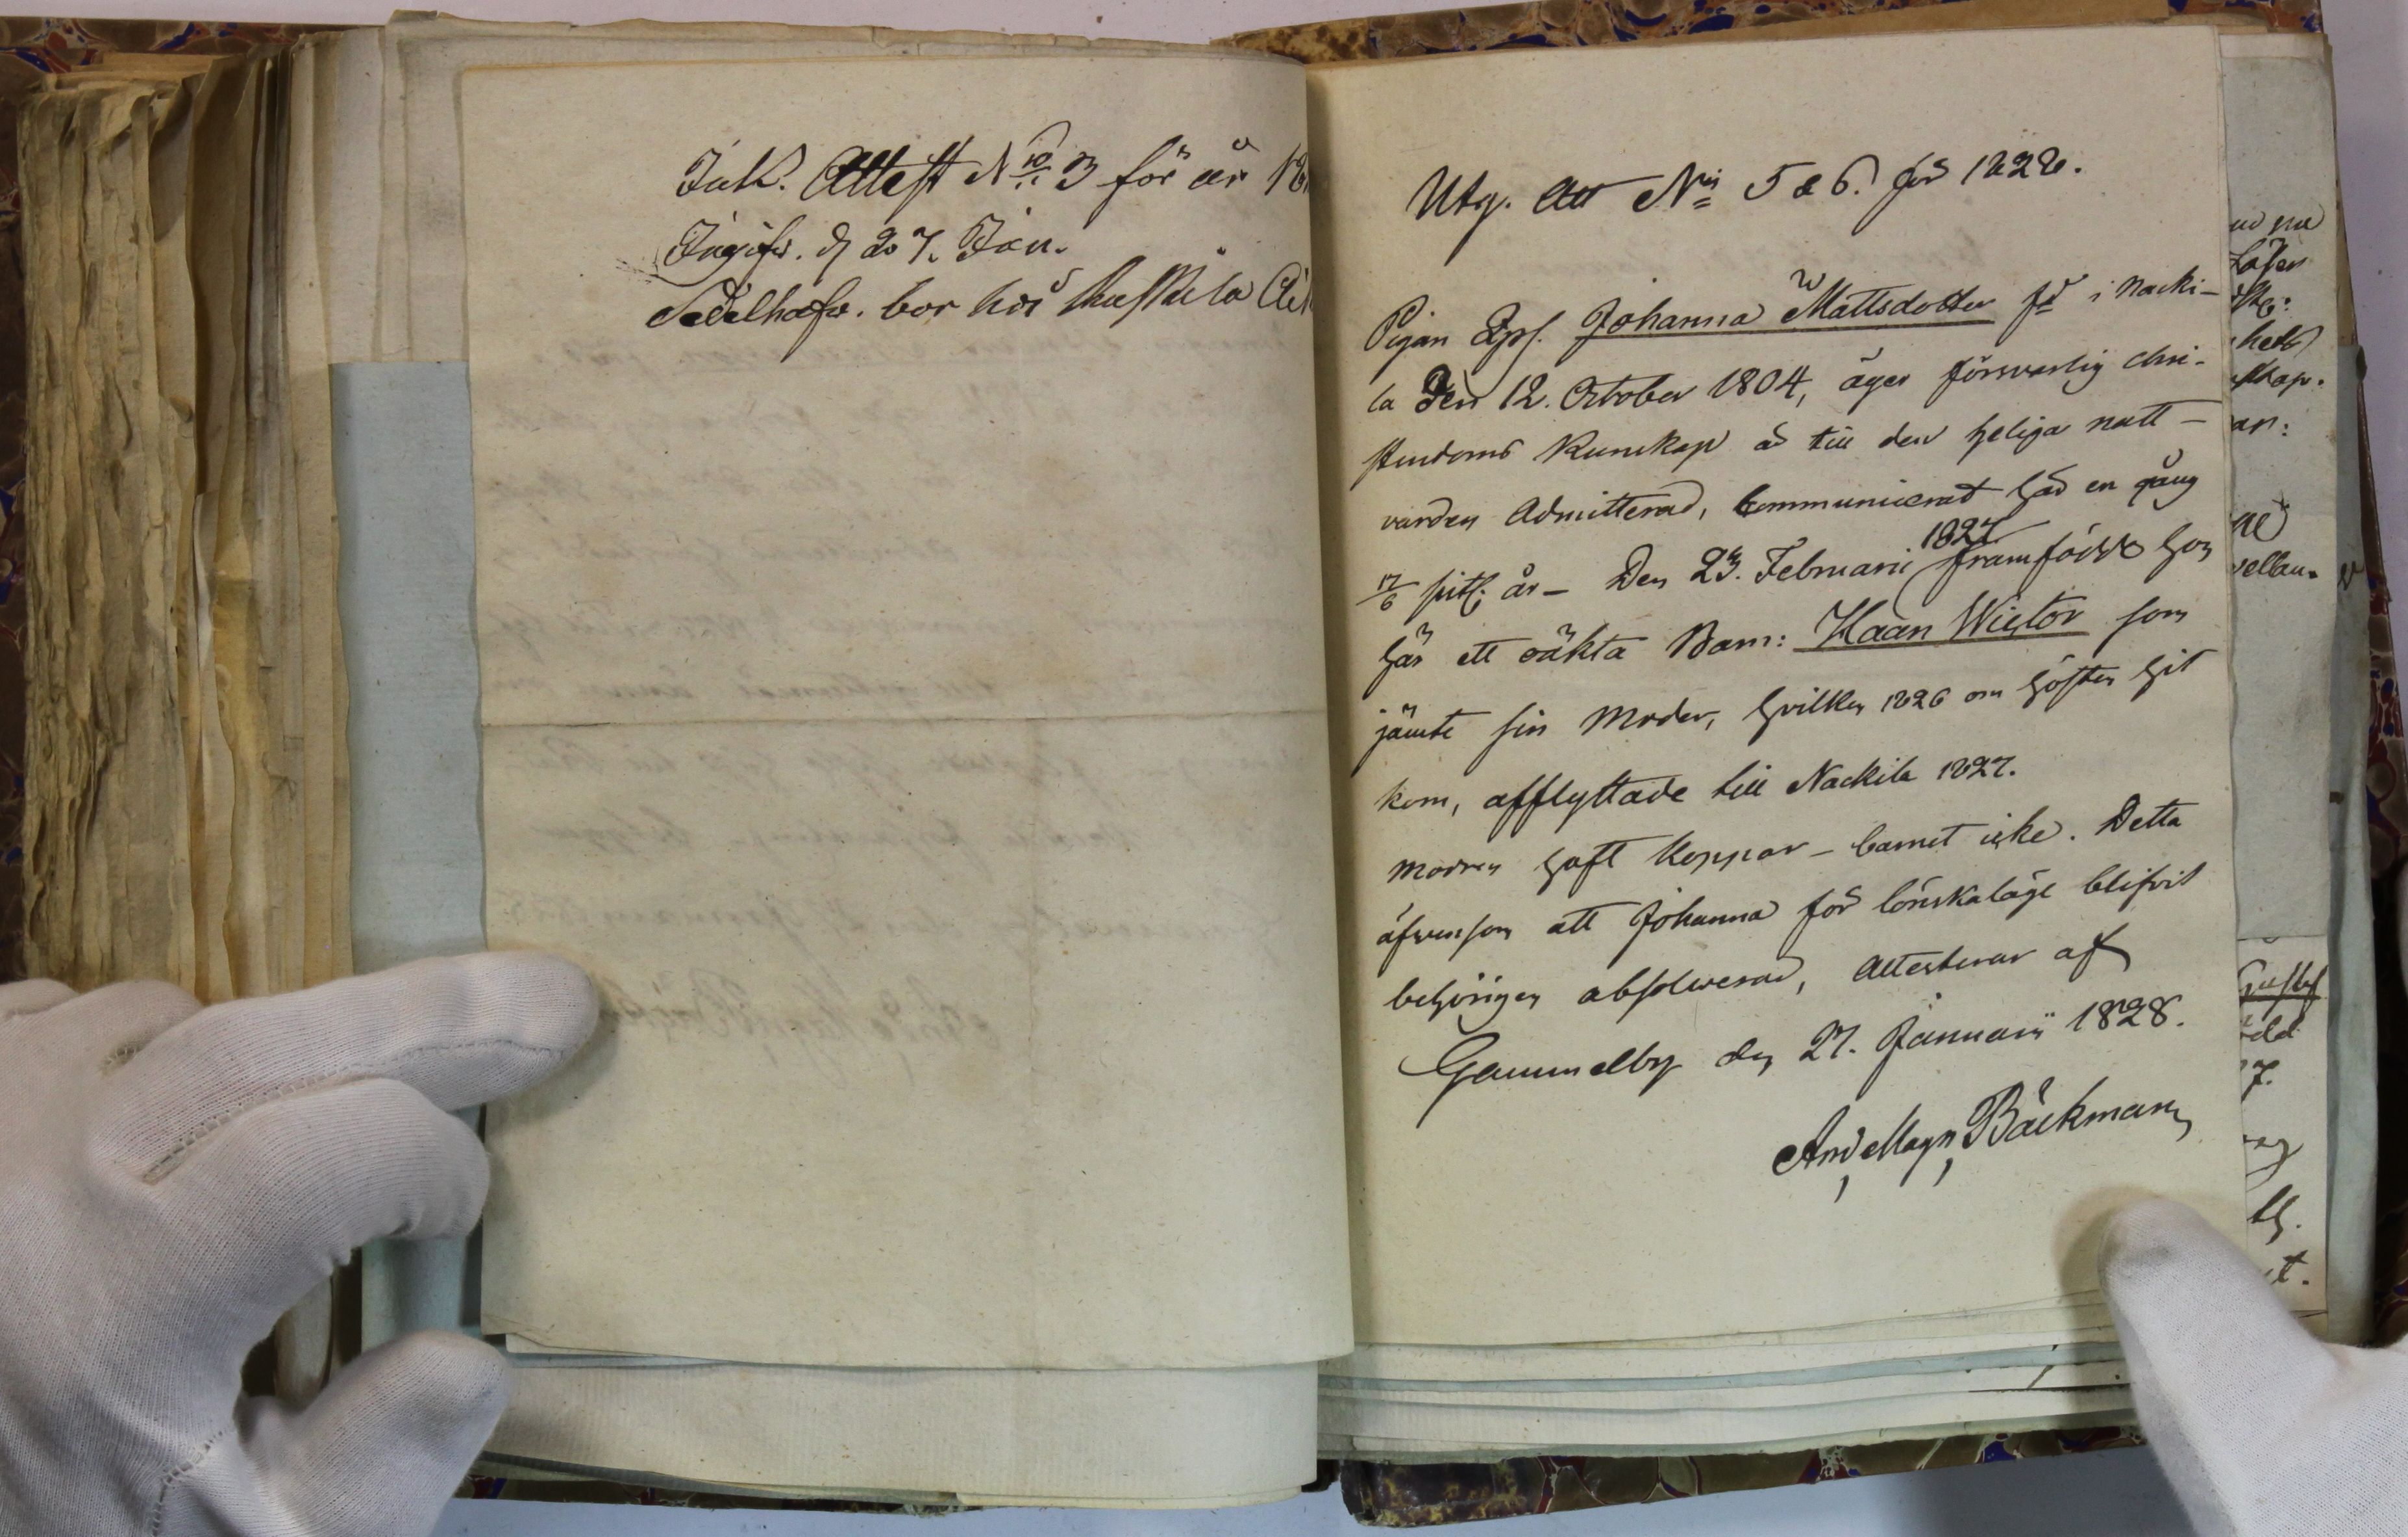 Ink. Attest N:o 3 för år 18
Ingifw. d 27. Jan.
Sedelhafw. bor hos
Utg. Att N:ris 5 & 6. för 1828.
Pigan Johanna Mattsdotter fd i Nacki-
la den 12. October 1804, äger försvarlig chri-
stendoms kunskap är till den heliga natt-
varden Admitterad, Communicerat här en gång
17/6 sistl: år – Den 23. Februarii 1827 framfödde hon
här ett oäkta Barn: Kaan Wictor som
jämte sin Moder, hvilken 1826 om hösten hit
kom, afflyttade till Nackila 1827.
Modren haft koppor – barnet icke. Detta
äfvensom att Johanna för lönskaläge blifvit
behörigen absolverad, Attesterar af
Gammelby den 27. Januarii 1828.
And. Magn. Bäckman